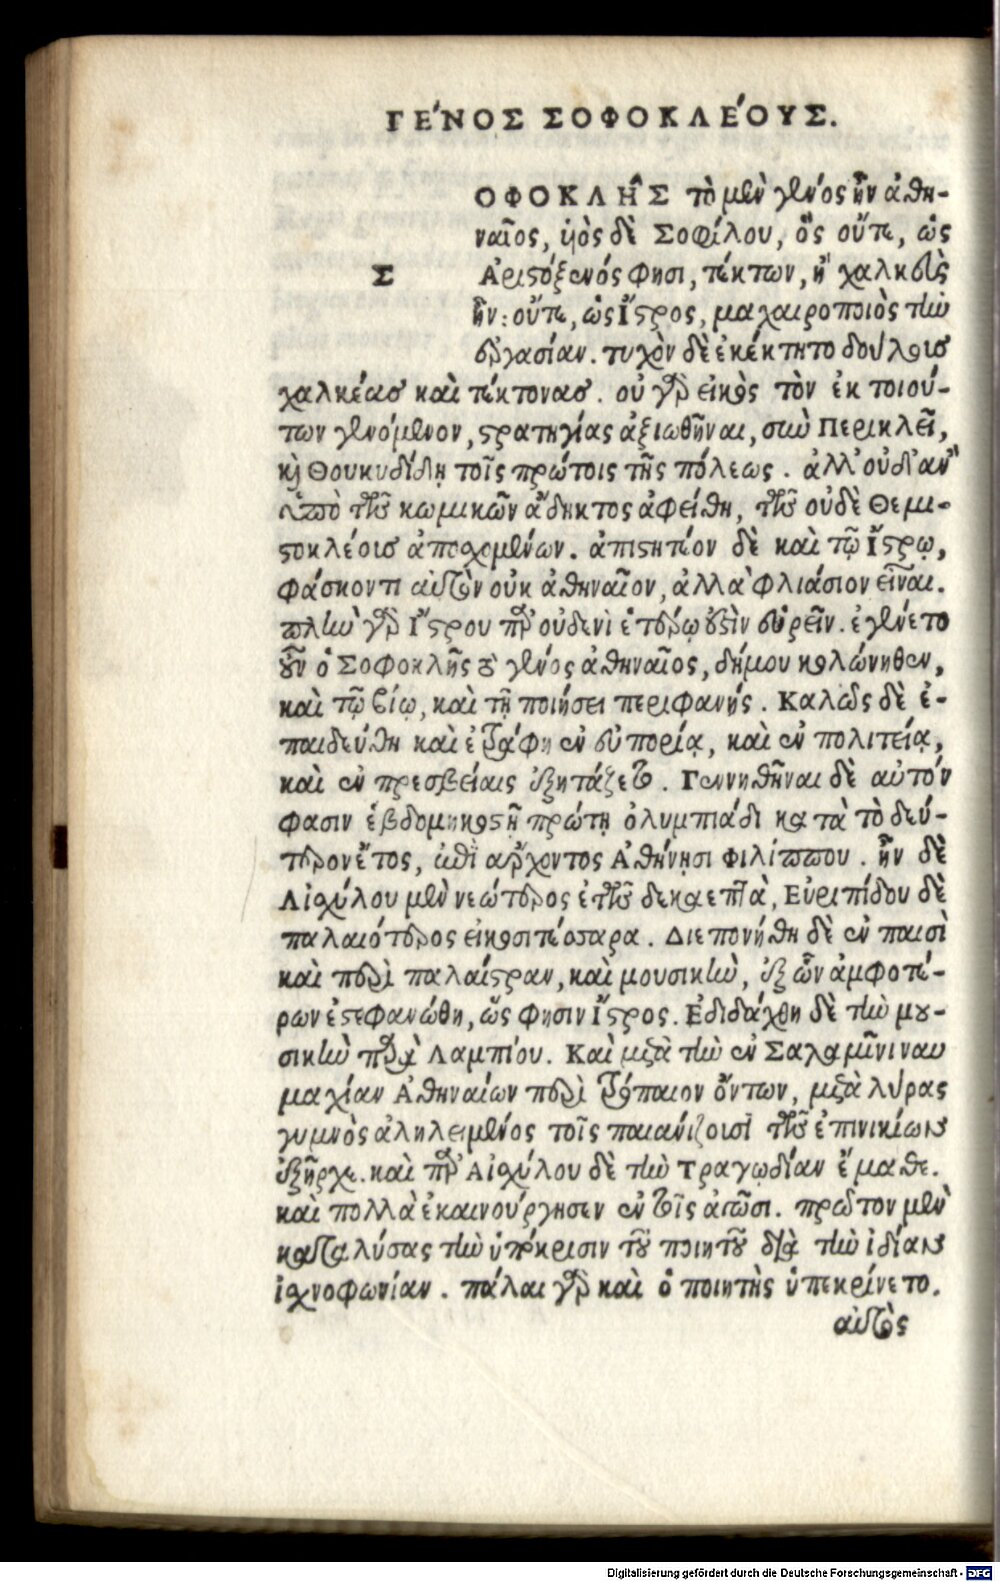 ΓΈΝΟΣ ΣΟΦΟΚΛΈΟΥΣ.
ΟΦΟΚΛΗ͂Σ τὸ μὲν γένος ἦν ἀθη-
ναῖος, ὑὸς δὲ Σοφίλου, ὃς οὔτε, ὡς
Σ
Ἀριστόξενός φησι, τέκτων, ἢ χαλκεὺς
ἦν: οὔτε, ὡς Ἴστρος, μαχαιροποιὸς τὴν
ἐργασίαν. τυχὸν δὲ ἐκέκτητο δούλους
χαλκέας καὶ τέκτονας. οὐ γὰρ εἰκὸς τὸν ἐκ τοιού-
των γενόμενον, στρατηγίας ἀξιωθῆναι, σὺν Περικλεῖ,
καὶ Θουκυδίδῃ τοῖς πρώτοις τῆς πόλεως. ἀλλ' οὐδ' ἂν
ὑπὸ τῶν κωμικῶν ἄδηκτος ἀφείθη, τῶν οὐδὲ Θεμι-
στοκλέους ἀποσχομένων. ἀπιστητέον δὲ καὶ τῷ Ἴστρῳ,
φάσκοντι αὐτὸν οὐκ ἀθηναῖον, ἀλλὰ φλιάσιον εἶναι.
πλὴν γὰρ Ἴστρου παρ' οὐδενὶ ἑτέρῳ τοῦτ' ἔστιν εὑρεῖν. ἐγένετο
οὖν ὁ Σοφοκλῆς τὸ γένος ἀθηναῖος, δήμου κολώνηθεν,
καὶ τῷ βίῳ, καὶ τῇ ποιήσει περιφανής. Καλῶς δὲ ἐ-
παιδεύθη καὶ ἐτράφη ἐν εὐπορίᾳ, καὶ ἐν πολιτείᾳ,
καὶ ἐν πρεσβείαις ἐξητάζετο. Γεννηθῆναι δὲ αὐτόν
φασιν ἑβδομηκοστῇ πρώτῃ ὀλυμπιάδι κατὰ τὸ δεύ-
τερον ἔτος, ἐπὶ ἄρχοντος Ἀθήνησι Φιλίππου. ἦν δὲ
Αἰσχύλου μὲν νεώτερος ἔτη δεκαεπτὰ, Εὐριπίδου δὲ
παλαιότερος εἰκοσιτέσσαρα. Διεπονήθη δὲ ἐν παισὶ
καὶ περὶ παλαίστραν, καὶ μουσικὴν, ἐξ ὧν ἀμφοτέ-
ρων ἐστεφανώθη, ὥς φησιν Ἴστρος. Ἐδιδάχθη δὲ τὴν μου-
σικὴν παρὰ Λαμπίου. Καὶ μετὰ τὴν ἐν Σαλαμῖνι ναυ
μαχίαν Ἀθηναίων περὶ τρόπαιον ὄντων, μετὰ λύρας
γυμνὸς ἀληλειμμένος τοῖς παιανίζουσι τῶν ἐπινικίων
ἐξῆρχε. καὶ παρ' Αἰσχύλου δὲ τὴν τραγῳδίαν ἔμαθε.
καὶ πολλὰ ἐκαινούργησεν ἐν τοῖς ἀγῶσι. πρῶτον μὲν
καταλύσας τὴν ὑπόκρισιν τοῦ ποιητοῦ διὰ τὴν ἰδίαν
ἰσχνοφωνίαν. πάλαι γὰρ καὶ ὁ ποιητὴς ὑπεκρίνετο.
αὐτὸς
Digitalisierung gefördert durch die Deutsche Forschungsgemeinschaft - DFG